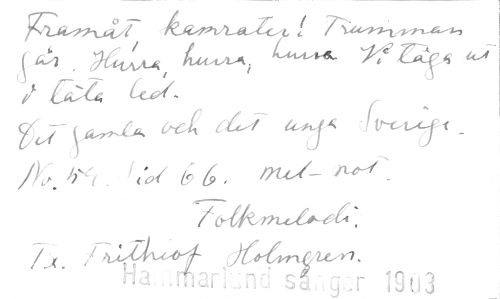 Framåt, kamrater! Trumman
går. Hurra, hurra, hurra Vi tåga ut
i täta led.
Det gamla och det unga Sverige.
No. 54. Sid 66. mel-not.
Folkmelodi.
Tx. Frithiof Holmgren.
Hammarlund sånger 1903